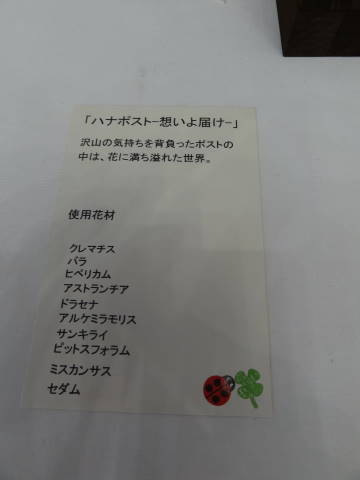 「ハナポスト−想いよ届け−」
沢山の気持ちを背負ったポストの
中は、花に満ち溢れた世界。
使用花材
クレマチス
バラ
ヒペリカム
アストランチア
ドラセナ
アルケミラモリス
サンキライ
ピットスフォラム
ミスカンサス
セダム